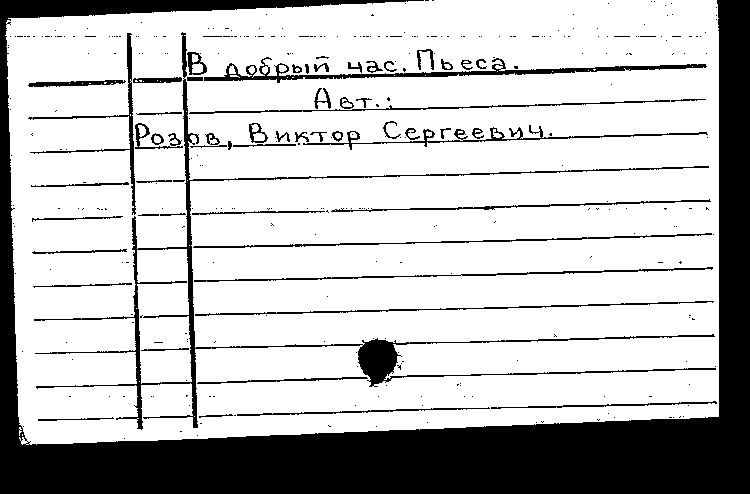 В добрый час. Пьеса.
Авт.:
Розов, Виктор Сергеевич.